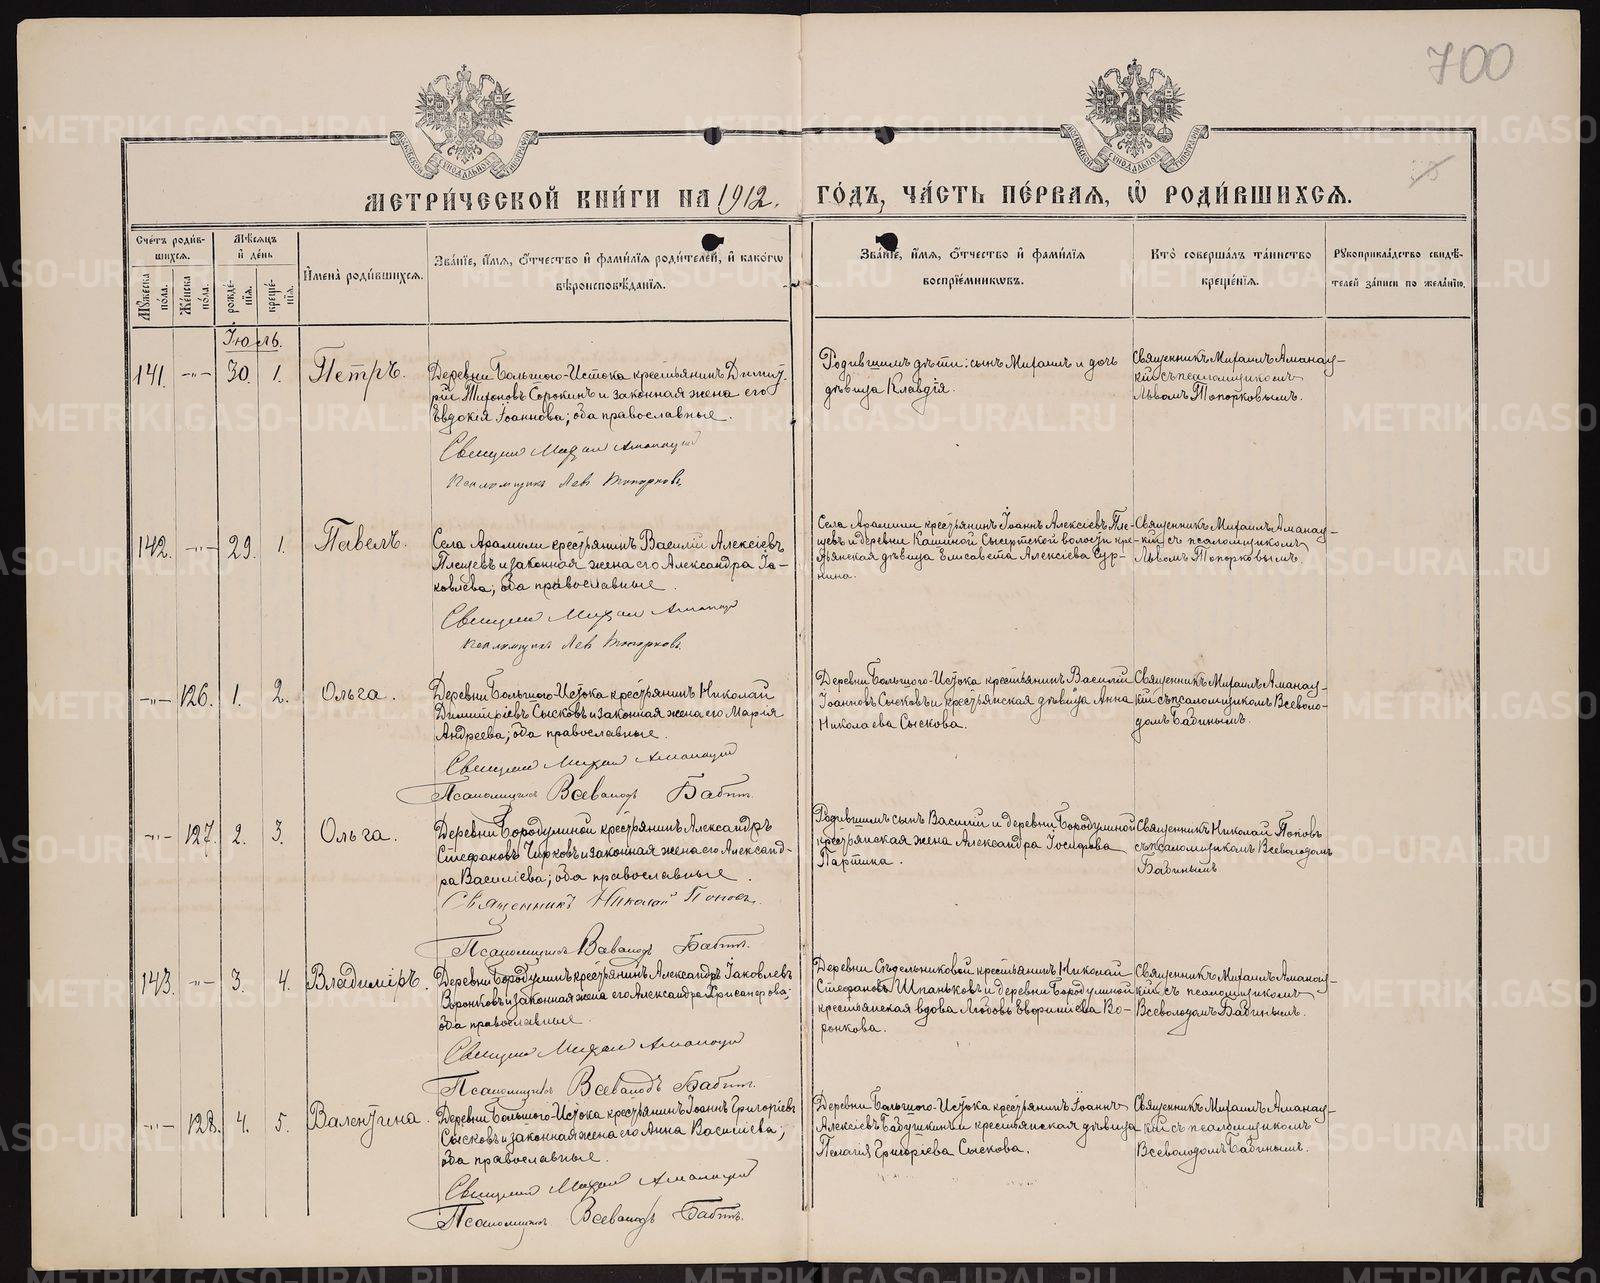 700
МЕТРИ́ЧЕСКОЙ КНИ́ГИ НА 1912. ГО́ДЪ, ЧА́СТЬ ПЕ́РВАЯ, Ѽ РОДИ́ВШИХСЯ.
Счетъ роди́вшихся.
Му́жеска по́ла.
Же́нска по́ла.
Мѣ́сяцъ и де́нь
рожде́нїя.
креще́нїя.
Имена̀ роди́вшихся.
Зва́нїе, и́мя, о́тчество и фами́лїя роди́телей, и како́гѡ вѣроисповѣ́данїя.
Зва́нїе, и́мя, о́тчество и фами́лїя воспрїе́мникѡвъ.
Кто̀ соверша́лъ та́инство креще́нїя.
Рукоприкла́дство свидѣ́телей за́писи по жела́нїю.
Іюль.
141. -"- 30. 1. Петръ.
Деревни Большого-Истока крестьянинъ Димит-
рій Тихоновъ Сорокинъ и законная жена его
Евдокія Іоаннова; оба православные.
Священн Михаил Аманацкій
Псаломщикъ Левъ Топорковъ
Родившимъ дѣти: сынъ Михаилъ и дочь
дѣвица Клавдія.
Священникъ Михаилъ Аманац-
кій съ псаломщикомъ
Львомъ Топорковымъ.
142. -"- 29. 1. Павелъ.
Села Арамили крестьянинъ Василій Алексіевъ
Плещевъ и законная жена его Александра Іа-
ковлева; оба православные.
Священн Михаил Аманацкій
Псаломщикъ Левъ Топорковъ
Села Арамили крестьянинъ Іоаннъ Алексіевъ Пле-
щевъ и деревни Кашиной Сысертской волости кре-
стьянская дѣвица Елисавета Алексіева Сур-
нина.
Священникъ Михаилъ Аманац-
кій съ псаломщикомъ
Львомъ Топорковымъ.
-"- 126. 1. 2. Ольга.
Деревни Большого-Истока крестьянинъ Николай
Димитріевъ Сысковъ и законная жена его Марія
Андреева; оба православные.
Священн Михаил Аманацкій
Псаломщикъ Всеволодъ Бабинъ.
Деревни Большого-Истока крестьянинъ Василій
Іоанновъ Сысковъ и крестьянская дѣвица Анна
Николаева Сыскова.
Священникъ Михаилъ Аманац-
кій съ псаломщикомъ Всеволо-
домъ Бабинымъ.
-"- 127. 2. 3. Ольга.
Деревни Бородулиной крестьянинъ Александръ
Стефановъ Чирковъ и законная жена его Александ-
ра Василіева; оба православные.
Священникъ Николай Поповъ.
Псаломщикъ Всеволодъ Бабинъ.
Родившимъ сынъ Василій и деревни Бородулиной
крестьянская жена Александра Іосифова
Паршина.
Священникъ Николай Поповъ
съ псаломщикомъ Всеволодомъ
Бабинымъ.
143. -"- 3. 4. Владиміръ.
Деревни Бородулинъ крестьянинъ Александръ Іаковлевъ
Воронковъ и законная жена его Александра Хрисанфова;
оба православные.
Священн Михаил Аманацкій
Псаломщикъ Всеволодъ Бабинъ.
Деревни Сѣдельниковой крестьянинъ Николай
Стефановъ Шпаньковъ и деревни Бородулиной
крестьянская вдова Любовь Евфиміева Во-
ронкова.
Священникъ Михаилъ Аманац-
кій съ псаломщикомъ
Всеволодомъ Бабинымъ.
-"- 128. 4. 5. Валентина.
Деревни Большого-Истока крестьянинъ Іоаннъ Григоріевъ
Сысковъ и законная жена его Анна Василіева;
оба православные.
Священн Михаил Аманацкій
Псаломщикъ Всеволодъ Бабинъ.
Деревни Большого-Истока крестьянинъ Іоаннъ
Алексіевъ Бабушкинъ и крестьянская дѣвица
Пелагія Григоріева Сыскова.
Священникъ Михаилъ Аманац-
кій съ псаломщикомъ
Всеволодомъ Бабинымъ.
METRIKI.GASO-URAL.RU